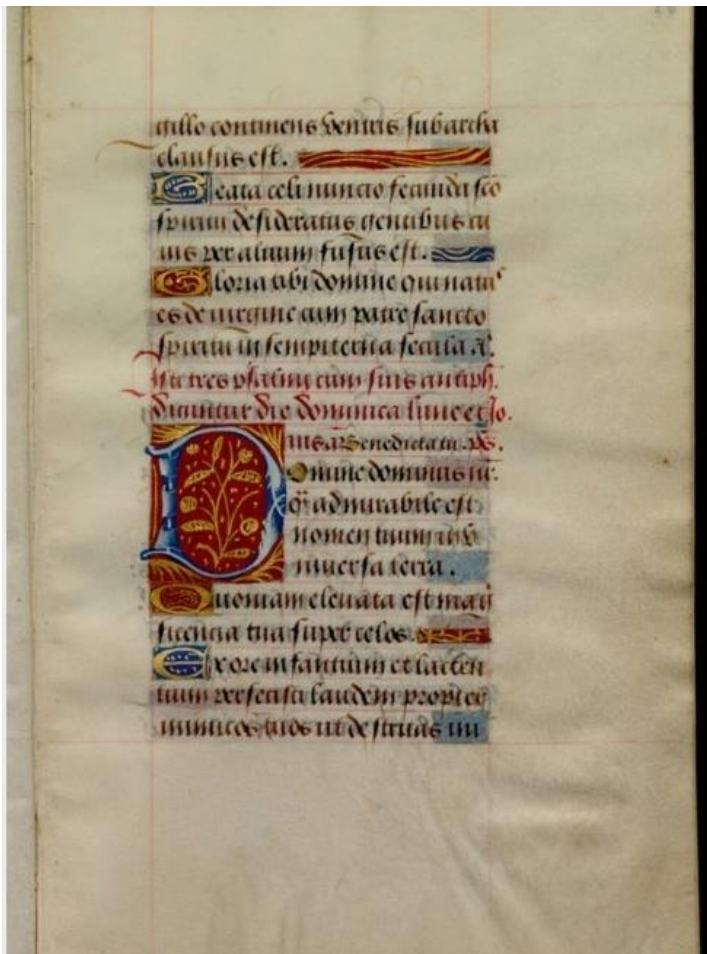 gillo continens ventris sub archa
clausus est.
Beata celi nuncio fecunda sc̄o
spiritu desideratus gentibus cu
ius per aluum fusus est.
Gloria tibi domine qui natus
es de virgine cum patre sancto
spiritu in sempiterna secula. A.
Isti tres psalmi cum suis antiph.
dicuntur die dominica lune et Jo.
Benedicta tu. ps.
Domine dominus nr̄.
q̄ȝ admirabile est
nomen tuum in v
niuersa terra.
Quoniam eleuata est magni
ficencia tua super celos.
Ex ore infantium et lacten
tium perfecisti laudem propter
inimicos tuos ut destruas ini